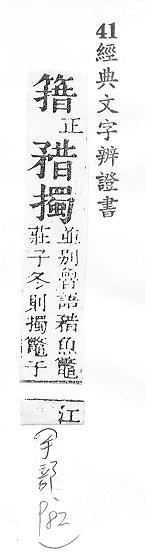 41經典文字辨證書
籍正
𥎊擉
並別魯語𥎊魚鼈
莊子冬則擉鼈于
江
手部
P82